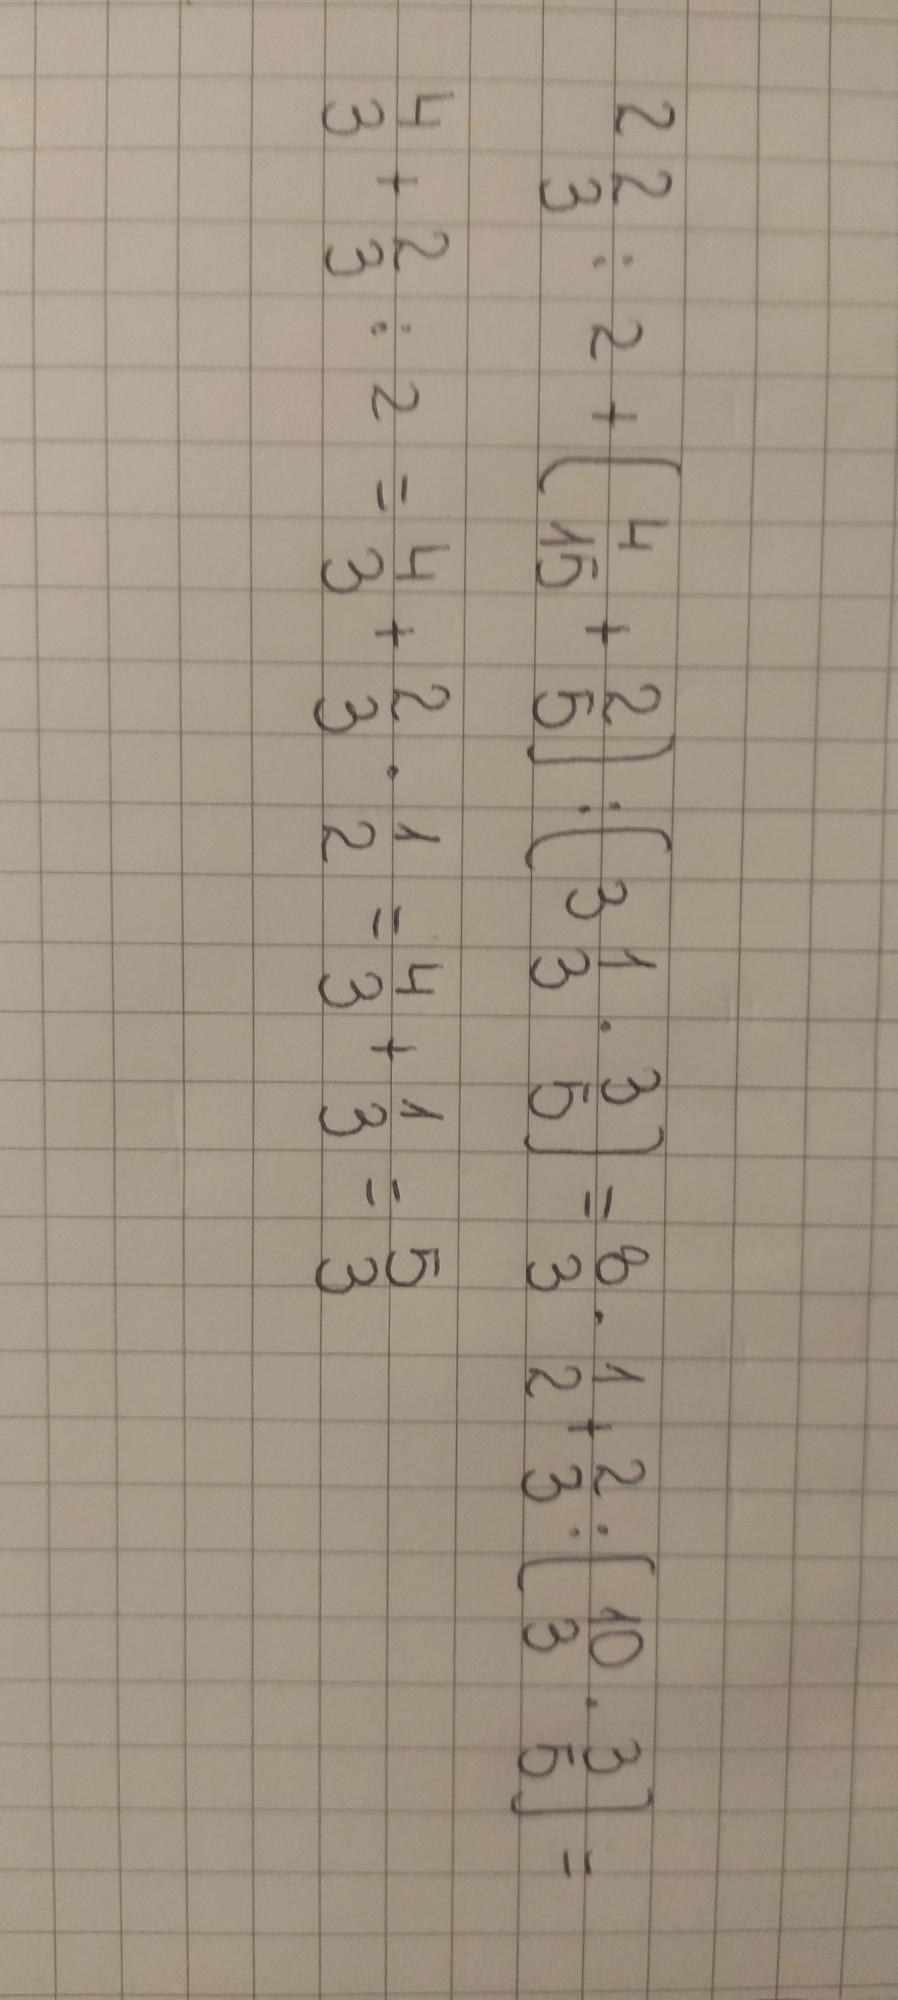 2 2/3 : 2 + (4/15 + 2/5) : (3 1/3 · 3/5) = 8/3 · 1/2 + 2/3 : (10/3 · 3/5) =
4/3 + 2/3 : 2 = 4/3 + 2/3 · 1/2 = 4/3 + 1/3 = 5/3